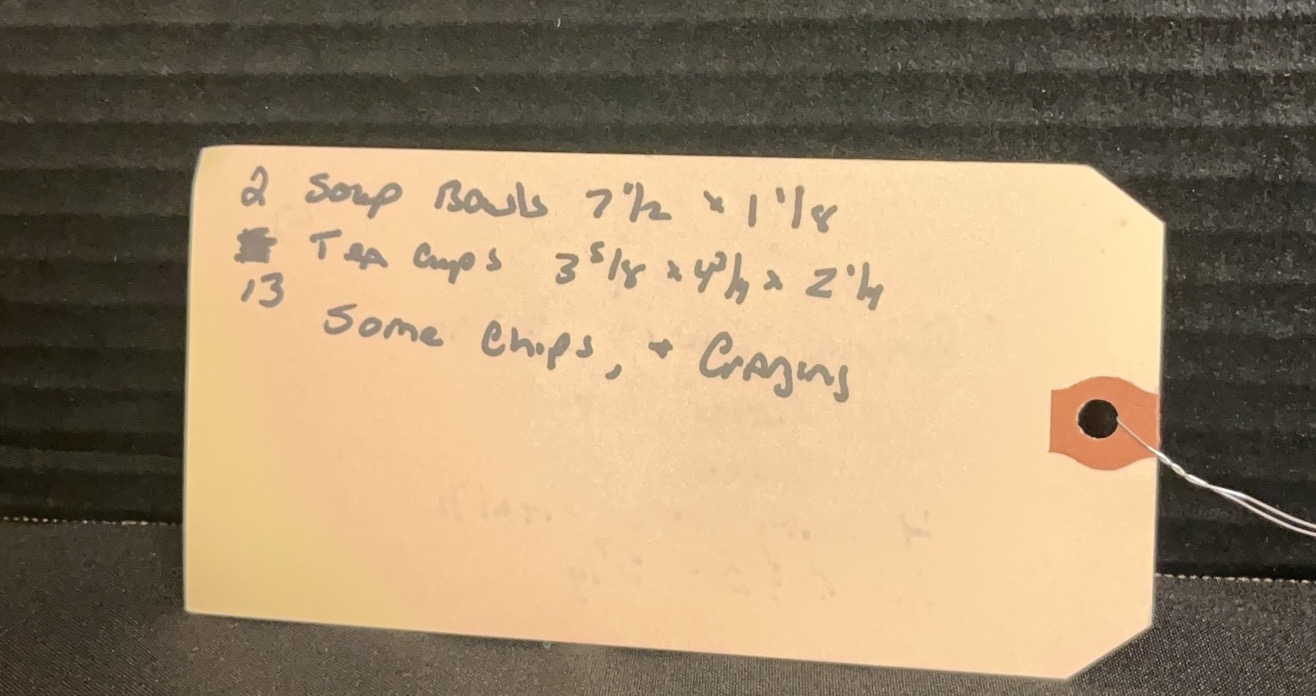 2 Soup Bowls 7 1/2 x 1 1/8
Tea Cups 3 5/8 x 4 3/4 x 2 1/4
13
Some Chips, + Crazing